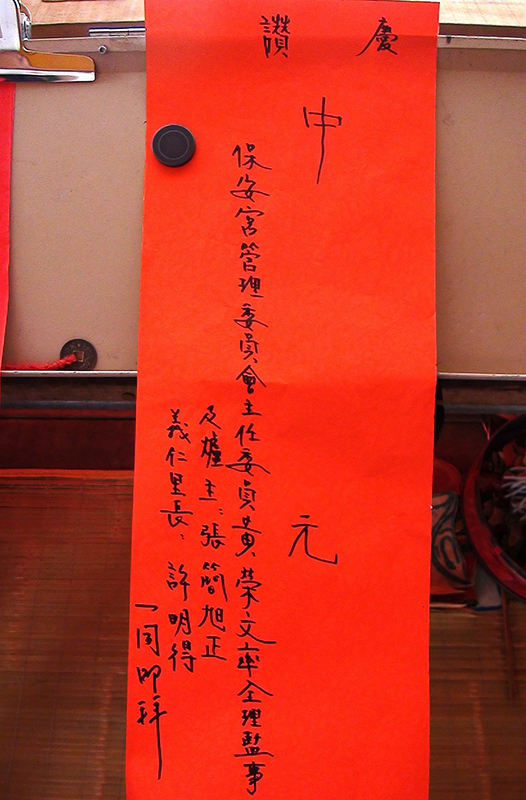 慶讚
中元
保安宮管理委員會主任委員黃榮文率全理監事
及爐主：張簡旭正
義仁里長：許明得
一同叩拜